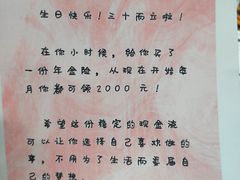 生日快乐！三十而立啦！
在你小时候，给你买了
一份年金险，从现在开始每
月你都可领2000元！
希望这份稳定的现金流
可以让你选择自己喜欢做的
事，不用为了生活而委屈自
己的梦想。